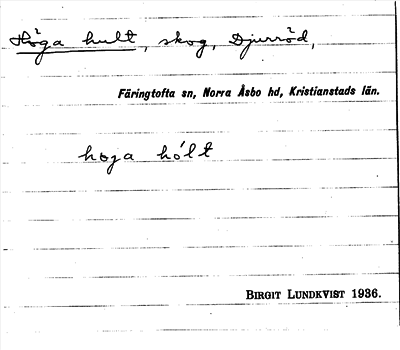 Höga hult, skog, Djurröd,
Färingtofta sn, Norra Åsbo hd, Kristianstads län.
höja hó́lt
BIRGIT LUNDKVIST 1936.